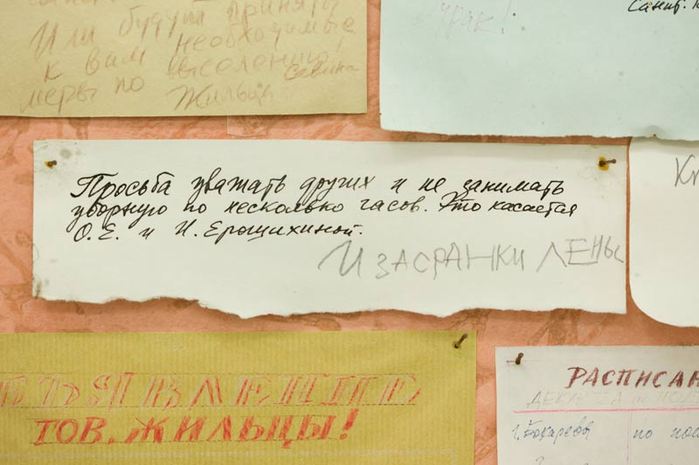 Или будут приняты
к вам необходимые
меры по выселению!
Жильцы
Санит.
Просьба уважать других и не занимать
уборную по несколько часов. Это касается
О.Е. и И. Ерощихиной.
И ЗАСРАНКИ ЛЕНЫ
ОБЪЯВЛЕНИЕ
ТОВ. ЖИЛЬЦЫ!
РАСПИСАН